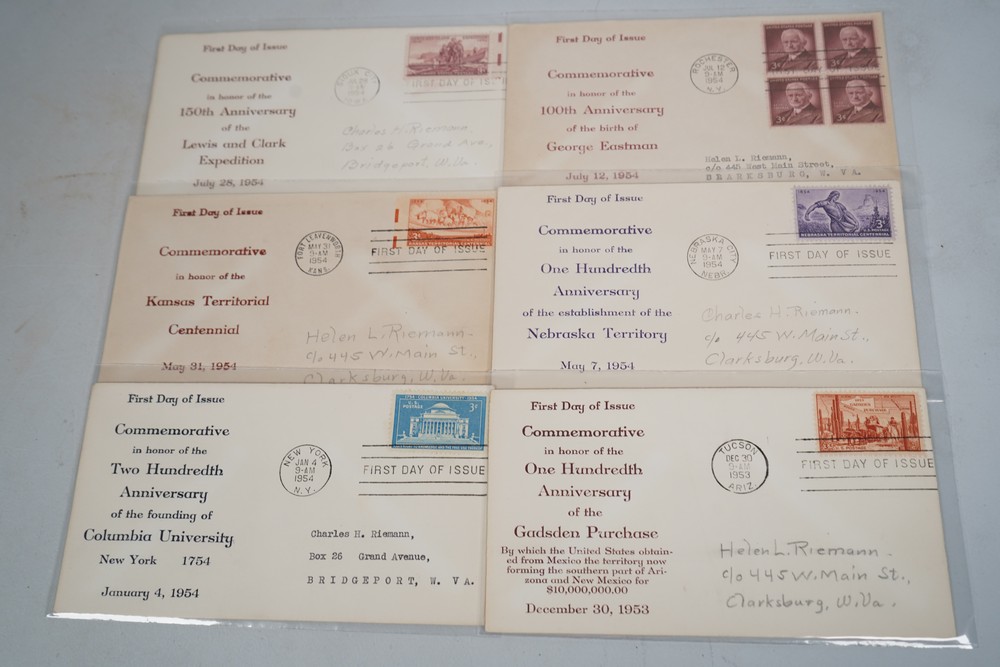 First Day of Issue
Commemorative
in honor of the
150th Anniversary
of the
Lewis and Clark
Expedition
July 28, 1954
FIRST DAY OF ISSUE
Charles H. Riemann,
Box 26 Grand Ave.,
Bridgeport, W. Va.
First Day of Issue
Commemorative
in honor of the
100th Anniversary
of the birth of
George Eastman
July 12, 1954
ROCHESTER
JUL 12
9-AM
1954
N.Y.
3¢
3¢
3¢
3¢
Helen L. Riemann,
c/o 445 West Main Street,
First Day of Issue
Commemorative
in honor of the
Kansas Territorial
Centennial
May 31, 1954
FORT LEAVENWORTH
MAY 31
9-AM
1954
KANS.
FIRST DAY OF ISSUE
Helen L. Riemann
c/o 445 W. Main St.,
Clarksburg, W. Va.
First Day of Issue
Commemorative
in honor of the
One Hundredth
Anniversary
of the establishment of the
Nebraska Territory
May 7, 1954
NEBRASKA CITY
MAY 7
9-AM
1954
NEBR.
1854 1954
3¢
NEBRASKA TERRITORIAL CENTENNIAL
FIRST DAY OF ISSUE
Charles H. Riemann
c/o 445 W. Main St.,
Clarksburg, W. Va.
First Day of Issue
Commemorative
in honor of the
Two Hundredth
Anniversary
of the founding of
Columbia University
New York 1754
January 4, 1954
NEW YORK
JAN 4
9-AM
1954
N.Y.
1754 · COLUMBIA UNIVERSITY · 1954
U.S. POSTAGE
3¢
FIRST DAY OF ISSUE
Charles H. Riemann,
Box 26 Grand Avenue,
BRIDGEPORT, W. VA.
First Day of Issue
Commemorative
in honor of the
One Hundredth
Anniversary
of the
Gadsden Purchase
By which the United States obtain-
ed from Mexico the territory now
forming the southern part of Ari-
zona and New Mexico for
$10,000,000.00
December 30, 1953
TUCSON
DEC 30
9-AM
1953
ARIZ.
FIRST DAY OF ISSUE
Helen L. Riemann
c/o 445 W. Main St.,
Clarksburg, W. Va.